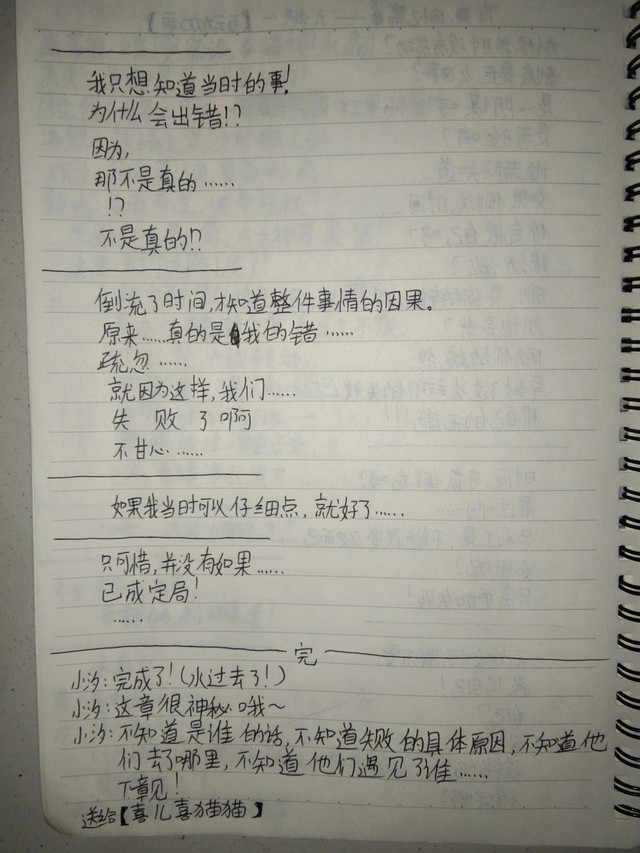 我只想知道当时的事!
为什么会出错!?
因为,
那不是真的……
!?
不是真的!?
倒流了时间,才知道整件事情的因果。
原来……真的是我的错……
疏忽……
就因为这样,我们……
失败了啊
不甘心……
如果我当时可以仔细点,就好了……
只可惜,并没有如果……
已成定局!
……
完
小汐:完成了!(水过去了!)
小汐:这章很神秘哦~
小汐:不知道是谁的话,不知道失败的具体原因,不知道他
们去了哪里,不知道他们遇见了谁……
下章见!
送给【喜儿喜猫猫】